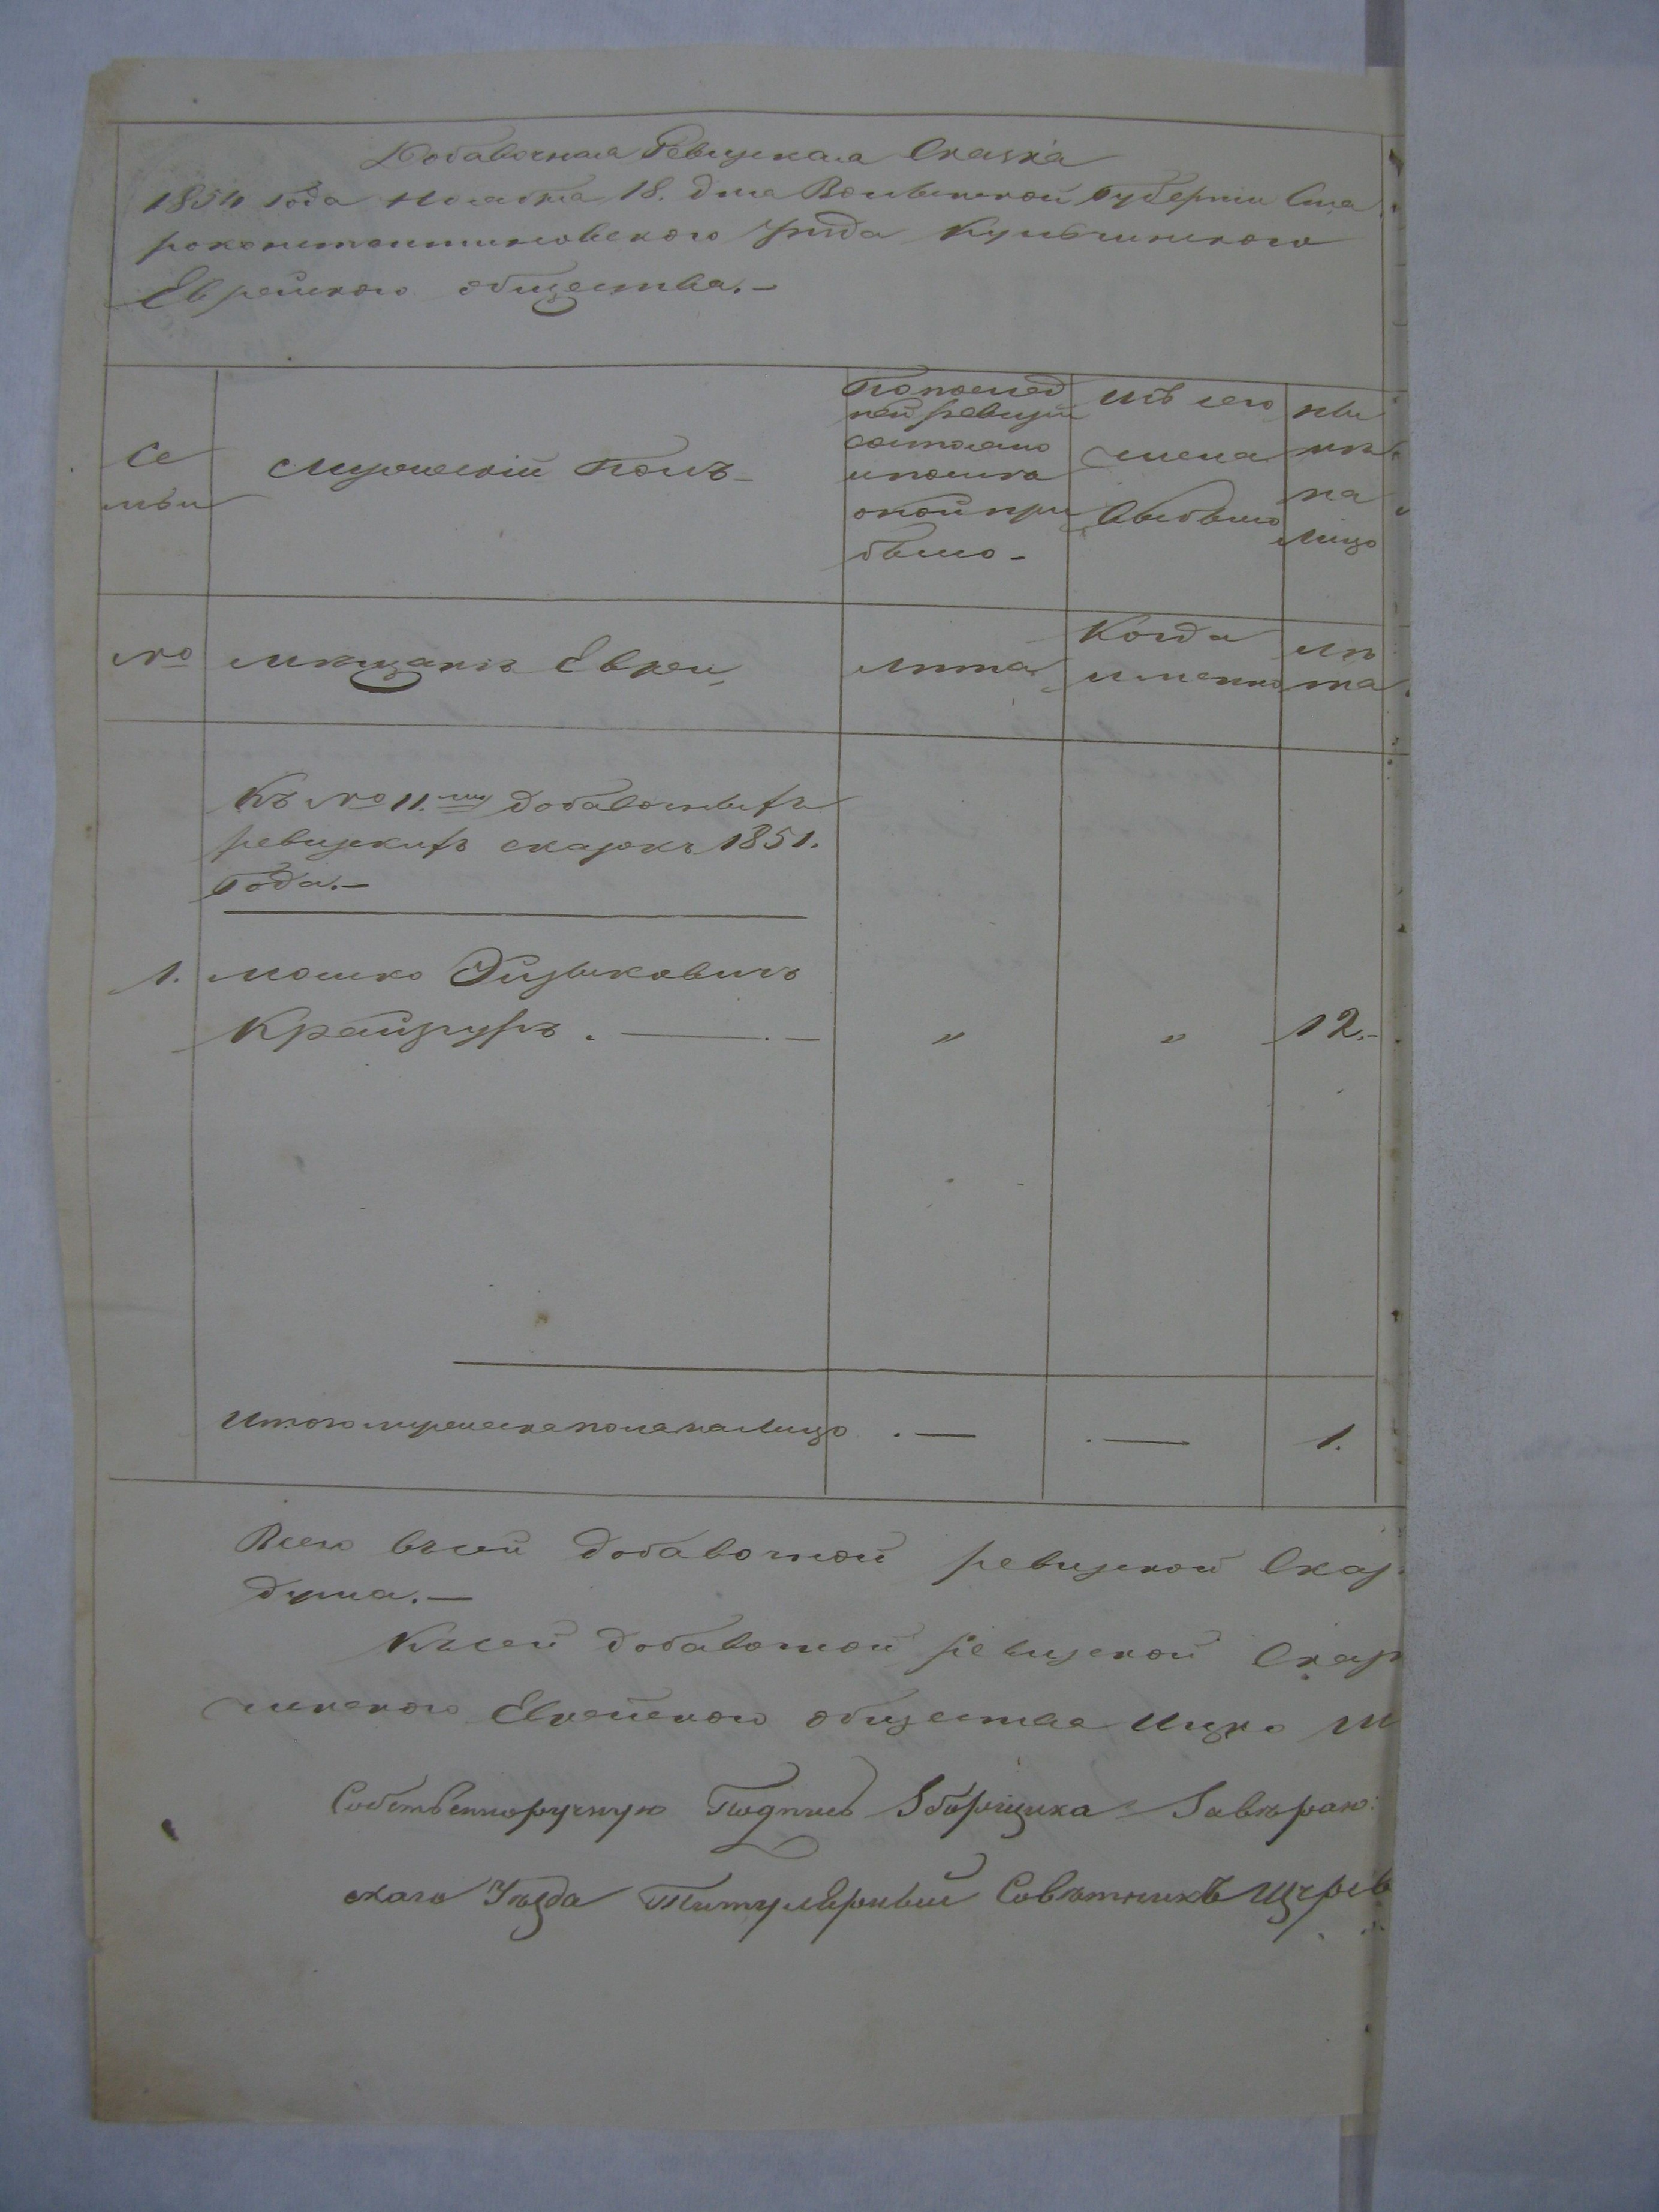 Добавочная Ревизская Сказка
1854 года Ноября 18. дня Волынской Губернии Ста
роконстантиновского уѣзда Кульчинского
Еврейского общества.–
Се
мьи
Мужескій полъ–
По послед
ней ревизіи
состояло
и после
оной при
было–
Изъ него
числа
выбыло
ны
нѣ
на
лицо
№
мѣщанъ Евреи
лѣта
Когда
именно
лѣ
та
Къ № 11.му добавочныхъ
ревизкихъ сказокъ 1851.
года.–
1. Мошко
12.–
Итого мужеска пола на лицо .— .— 1.
Всего въ сей добавочной ревизской Сказ
душа.–
Къ сей добавочной ревизской Сказ
чинского Еврейского общества Ицко
Собственноручную Подпись Зборщика Завѣряю:
скаго Уѣзда Титулярный Совѣтникъ